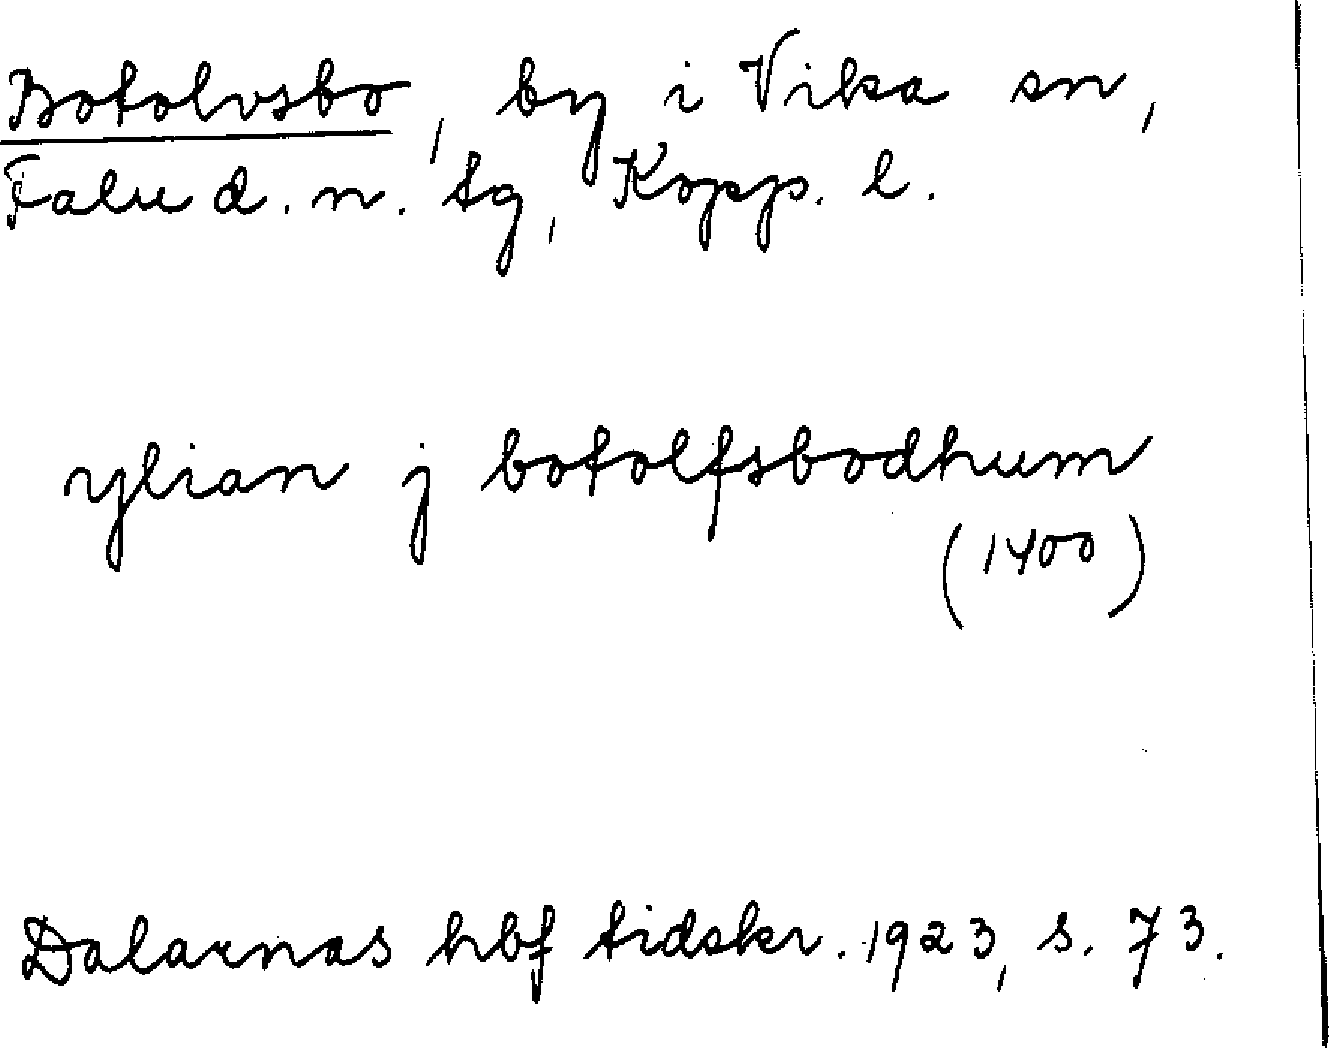 Botolvsbo, by i Vika sn,
Falu d. n. tg, Kopp. l.
ylian j botolfsbodhum
(1400)
Dalarnas hbf tidskr. 1923, s. 73.